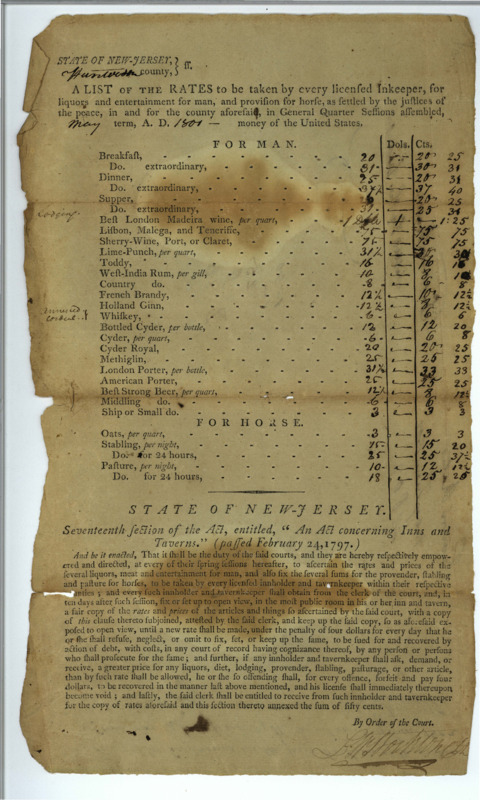 STATE OF NEW-JERSEY, } ss.
county, }
A LIST OF THE RATES to be taken by every licensed Inkeeper, for
liquors and entertainment for man, and provision for horse, as settled by the justices of
the peace, in and for the county aforesaid, in General Quarter Sessions assembled,
May term, A. D. 1801 — money of the United States.
FOR MAN. Dols. Cts.
Breakfast, 20 20 25
Do. extraordinary, 31 30 31
Dinner, 25 30 31
Do. extraordinary, 37½ 37 40
Supper, 20 25
Lodging
Do. extraordinary, 25 31
Best London Madeira wine, per quart, 1 1:25
Lisbon, Malega, and Teneriffe, 75 75
Sherry-Wine, Port, or Claret, 75 75 75
Lime-Punch, per quart, 31½
Toddy, 16 16 16
West-India Rum, per gill, 10 8 10
Country do. 8 6 8
French Brandy, 12½ 10 12½
Holland Ginn, 12½ 8 12½
Whiskey, 6 6 6
Bottled Cyder, per bottle, 12 12 20
Cyder, per quart, 6 6 8
Cyder Royal, 20 20 25
Methiglin, 25 25 25
London Porter, per bottle, 31½ 33 33
American Porter, 25 25 25
Best Strong Beer, per quart, 12½ 8 12½
Middling do. 6 6 8
Ship or Small do. 3 3 3
FOR HORSE.
Oats, per quart, 3 3 3
Stabling, per night, 15 15 20
Do. for 24 hours, 25 25 37½
Pasture, per night, 10 12 12½
Do. for 24 hours, 18 25 25
STATE OF NEW-JERSEY.
Seventeenth section of the Act, entitled, "An Act concerning Inns and
Taverns." (passed February 24, 1797.)
And be it enacted, That it shall be the duty of the said courts, and they are hereby respectively empow-
ered and directed, at every of their spring sessions hereafter, to ascertain the rates and prices of the
several liquors, meat and entertainment for man, and also fix the several sums for the provender, stabling
and pasture for horses, to be taken by every licensed innholder and tavernkeeper within their respective
counties; and every such innholder and tavernkeeper shall obtain from the clerk of the court, and, in
ten days after such session, fix or set up to open view, in the most public room in his or her inn and tavern,
a fair copy of the rates and prices of the articles and things so ascertained by the said court, with a copy
of this clause thereto subjoined, attested by the said clerk, and keep up the said copy, so as aforesaid ex-
posed to open view, until a new rate shall be made, under the penalty of four dollars for every day that he
or she shall refuse, neglect, or omit to fix, set, or keep up the same, to be sued for and recovered by
action of debt, with costs, in any court of record having cognizance thereof, by any person or persons
who shall prosecute for the same; and further, if any innholder and tavernkeeper shall ask, demand, or
receive, a greater price for any liquors, diet, lodging, provender, stabling, pasturage, or other article,
than by such rate shall be allowed, he or she so offending shall, for every offence, forfeit and pay four
dollars, to be recovered in the manner last above mentioned, and his license shall immediately thereupon
become void; and lastly, the said clerk shall be entitled to receive from such innholder and tavernkeeper
for the copy of rates aforesaid and this section thereto annexed the sum of fifty cents.
By Order of the Court.